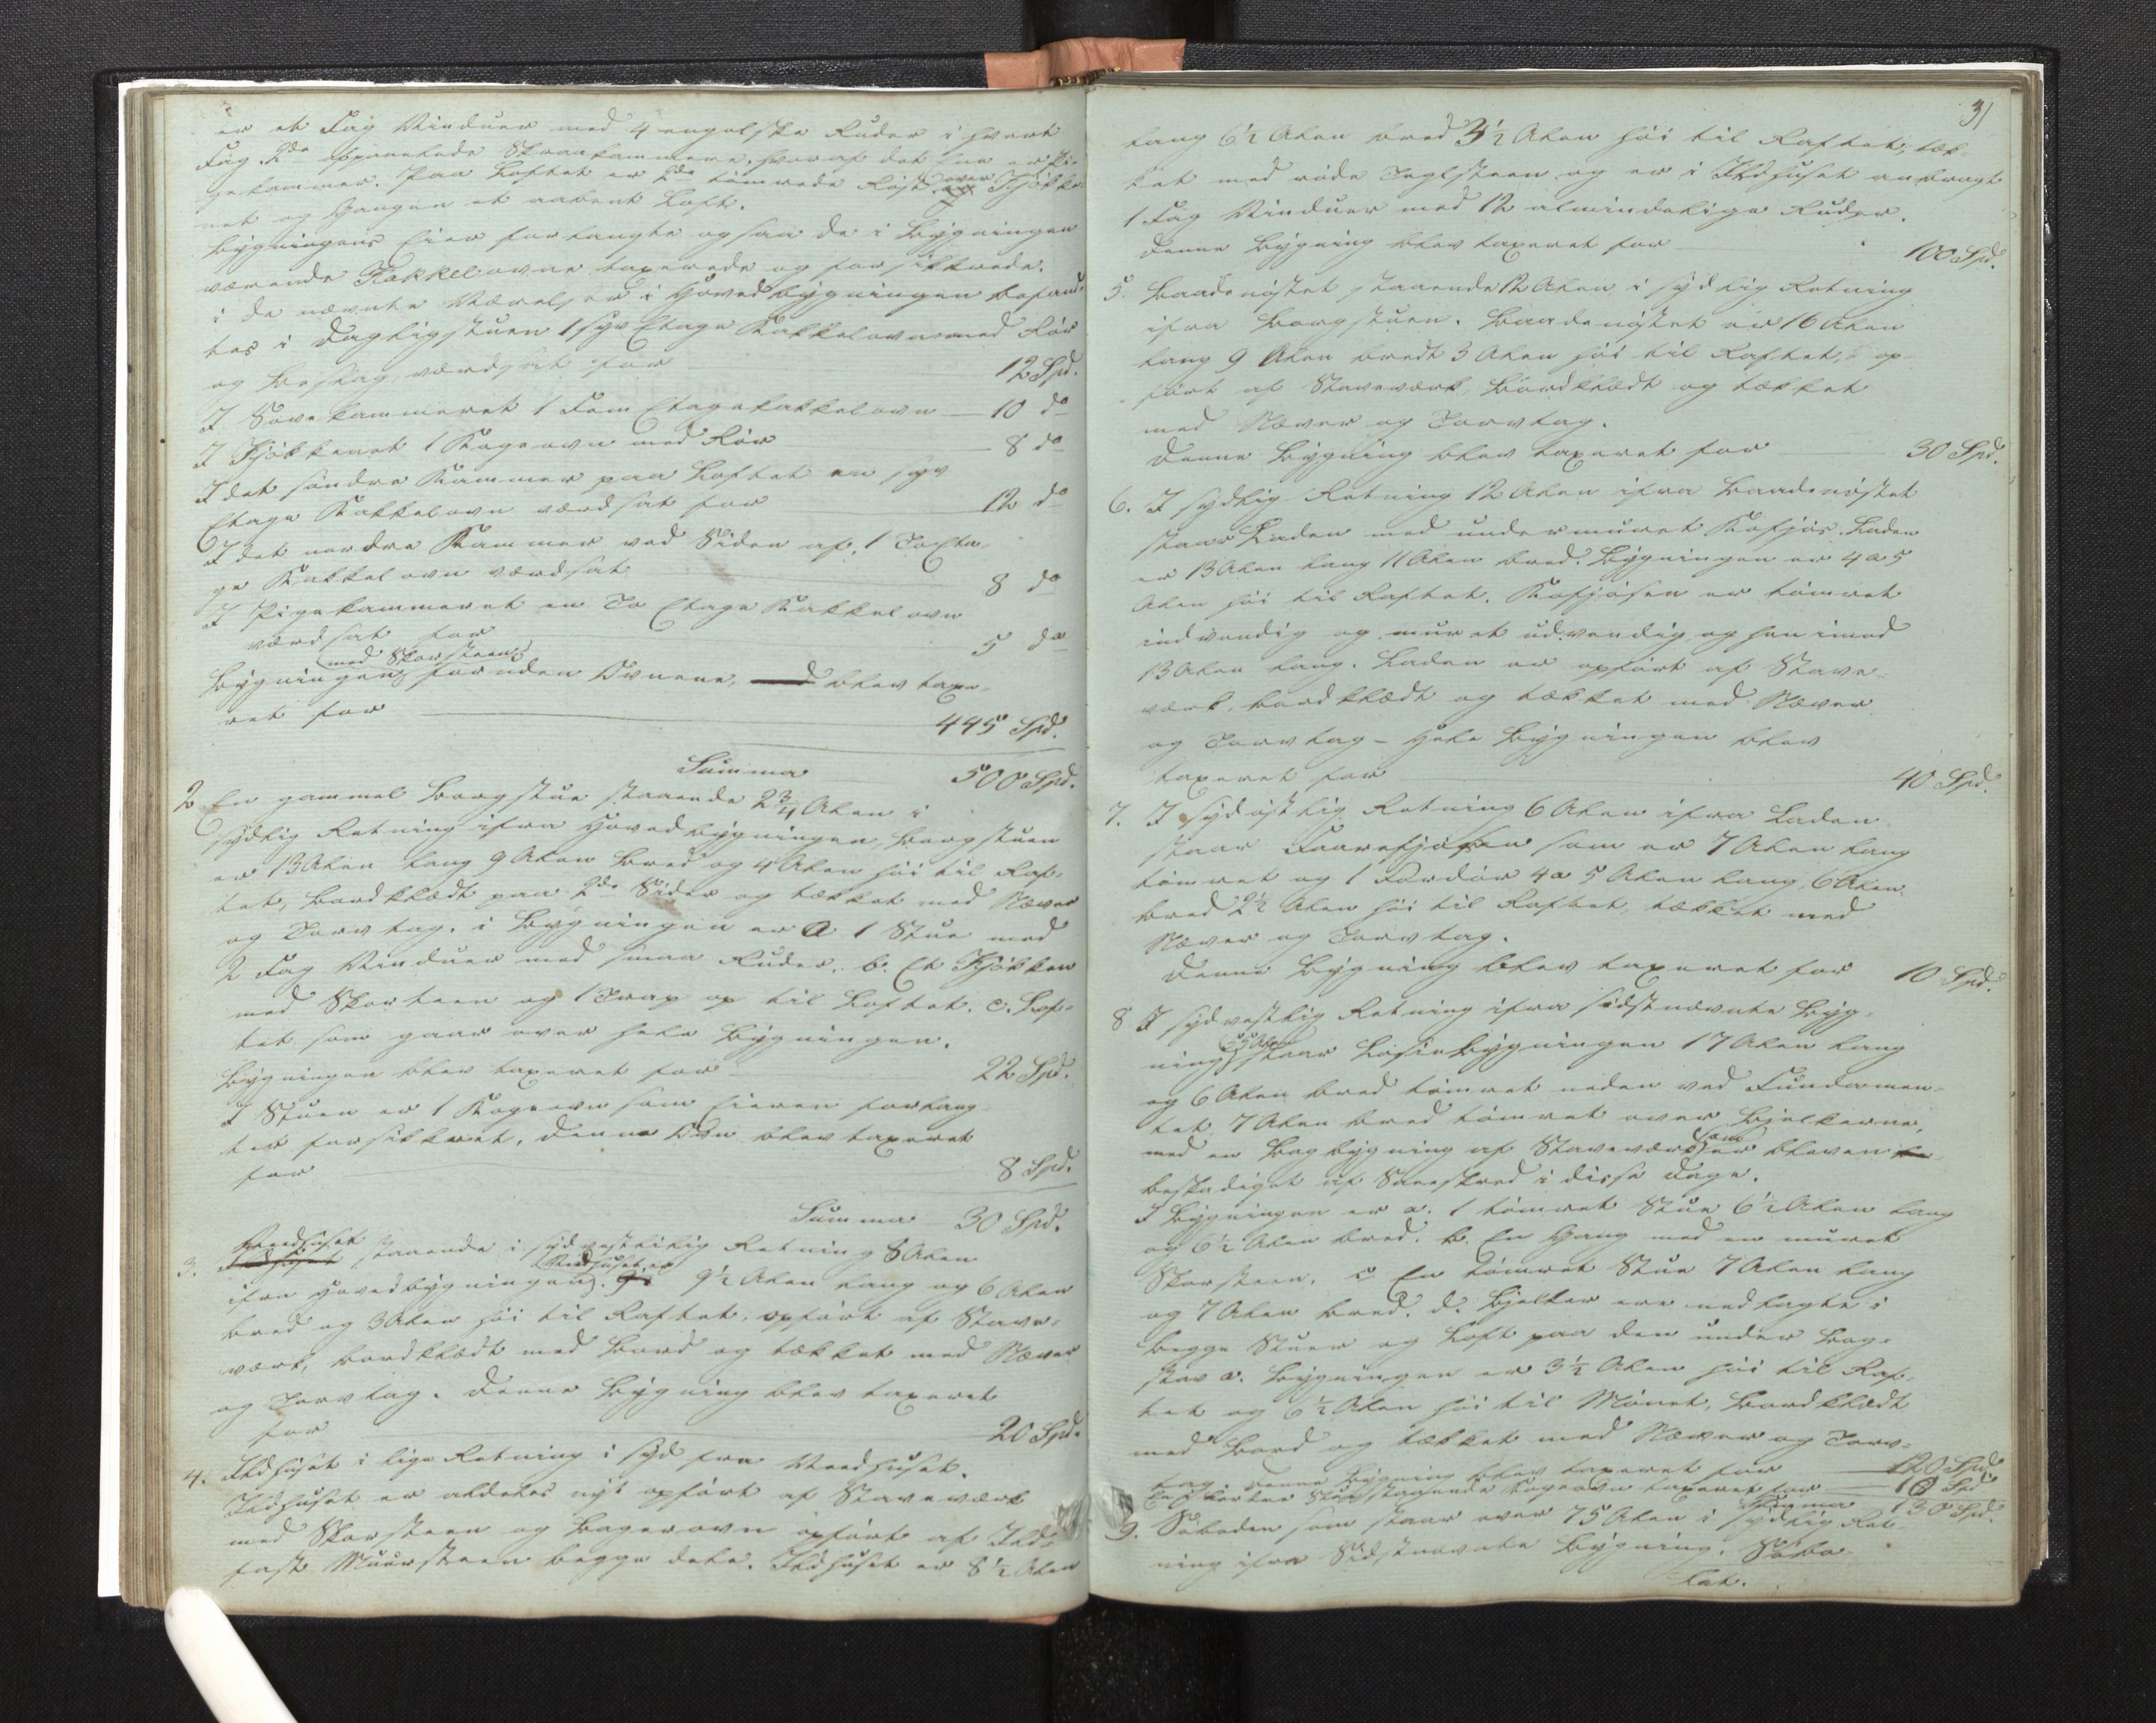 er et Fag Vinduer med 4 engelske Ruder i hvert
Fag 2de Skraakammere, hvoraf det Ene er Pi-
gekammer. Paa Loftet er 2de tømrede Røst over Kjøkke-
net og Gangen et aabent Loft.
Bygningens Eier forlangte ogsaa de i Bygningen
værende Kakkelovne taxerede og forsikkrede.
i de nævnte Værelser i Hovedbygningen befand-
tes i Dagligstuen 1 syv Etage Kakkelovn med Rør
og Beslag værdsat for 12 Spd.
I Sovekammeret 1 Fem Etage Kakkelovn 10 do
I Kjøkkenet 1 Kogeovn med Rør 8 do
I det søndre Kammer paa Loftet en syv
Etage Kakkelovn værdsat for 12 do
I det nordre Kammer ved Siden af, 1 To Eta-
ge Kakkelovn værdsat 8 do
I Pigekammeret en To Etage Kakkelovn
værdsat for 5 do
Bygningen med Skorsteen foruden Ovnene, blev taxe-
ret for 445 Spd.
Summa 500 Spd.
2 En gammel Borgstue staaende 2 3/4 Alen i
sydlig Retning ifra Hovedbygningen, Borgstuen
er 13 Alen lang 9 Alen bred og 4 Alen høi til Raf-
tet, bordklædt paa 2de Sider og tækket med Næver
og Torvtag. i Bygningen er a 1 Stue med
2 Fag Vinduer med smaa Ruder. b. Et Kjøkken
med Skorsteen og 1 Trap op til Loftet. c. Lof-
tet som gaar over hele Bygningen.
Bygningen blev taxeret for 22 Spd.
I Stuen er 1 Kogeovn som Eieren forlang-
ter forsikkret, denne Ovn blev taxeret
for 8 Spd.
Summa 30 Spd.
3. Veedhuset staaende i sydvestlig Retning 8 Alen
ifra Hovedbygningen. Veedhuset er 9 1/2 Alen lang og 6 Alen
bred og 3 Alen høi til Raftet, opført af Stave-
værk, bordklædt med Bord og tækket med Næver
og Torvtag. Denne Bygning blev taxeret
for 20 Spd.
4. Ildhuset i lige Retning i syd fra Veedhuset.
Ildhuset er aldeles nyt opført af Staveværk
med Skorsteen og Bagerovn opført af Ild-
fast Muursteen begge dele. Ildhuset er 8 1/2 Alen
31
lang 6 1/2 Alen bred 3 1/2 Alen høi til Raftet, tæk-
ket med røde Teglsteen og er i Ildhuset anbragt
1 Fag Vinduer med 12 almindelige Ruder.
Denne Bygning blev taxeret for 100 Spd.
5. Baadenøstet staaende 12 Alen i sydlig Retning
ifra Borgstuen. Baadenøstet er 16 Alen
lang 9 Alen bredt 3 Alen høi til Raftet, op-
ført af Staveværk, bordklædt og tækket
med Næver og Torvtag.
Denne Bygning blev taxeret for 30 Spd.
6. I sydlig Retning 12 Alen ifra Baadenøstet
staar Laden med undermuret Kofjøs. Laden
er 13 Alen lang 11 Alen bred. Bygningen er 4 a 5
Alen høi til Raftet. Kofjøsen er tømret
indvendig og muret udvendig og henimod
13 Alen lang. Laden er opført af Stave-
værk, bordklædt og tækket med Næver
og Torvtag - Hele Bygningen blev
taxeret for 40 Spd.
7. I sydøstlig Retning 6 Alen ifra Laden
staar Faarefjøsen som er 7 Alen lang
tømret og 1 Fordør 4 a 5 Alen lang, 6 Alen
bred 2 1/2 Alen høi til Raftet, tækket med
Næver og Torvtag.
Denne Bygning blev taxeret for 10 Spd.
8 I sydvestlig Retning ifra sidstnævnte Byg-
ning staar Losiebygningen 17 Alen lang
og 6 Alen bred tømret neden ved Fundamen-
tet, 7 Alen bred tømret over Bjelkerne,
med en Bagbygning af Staveværk som er bleven
beskadiget af Sneeskred i disse Dage.
I Bygningen er a. 1 tømret Stue 6 1/2 Alen lang
og 6 1/2 Alen bred. b. En Gang med en muret
Skorsteen. c En tømret Stue 7 Alen lang
og 7 Alen bred. d. Bjelker ere nedlagte i
begge Stuer og Loft paa den under Bog-
stav a. Bygningen er 3 1/2 Alen høi til Raf-
tet og 6 1/2 Alen høi til Mønet, bordklædt
med Bord og tækket med Næver og Torv-
tag Denne Bygning blev taxeret for 120 Spd
Stue staaende Kogeovn taxeret for 10 Spd
Summa 130 Spd.
9. Søboden som staar over 75 Alen i sydlig Ret-
ning ifra Sidstnævnte Bygning. Søbo-
Lat.